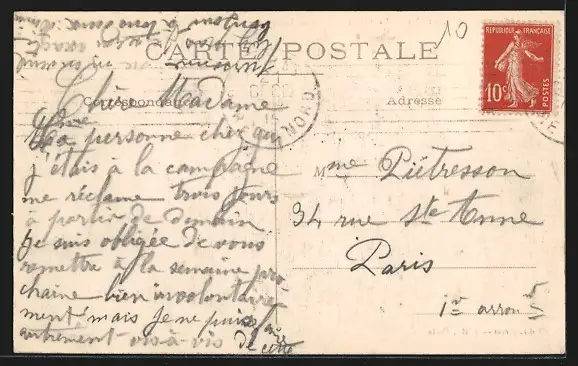 CARTE POSTALE
10
REPUBLIQUE FRANÇAISE
10c
POSTES
Correspondance
Adresse
Chère Madame
La personne chez qui
j'étais à la campagne
me réclame trois jours
à partir de demain
je suis obligée de vous
remettre à la semaine pro
chaine bien involontaire
ment mais je ne puis
autrement vis-à-vis de cette
Mme Piétresson
34 rue Ste Anne
Paris
1er arron